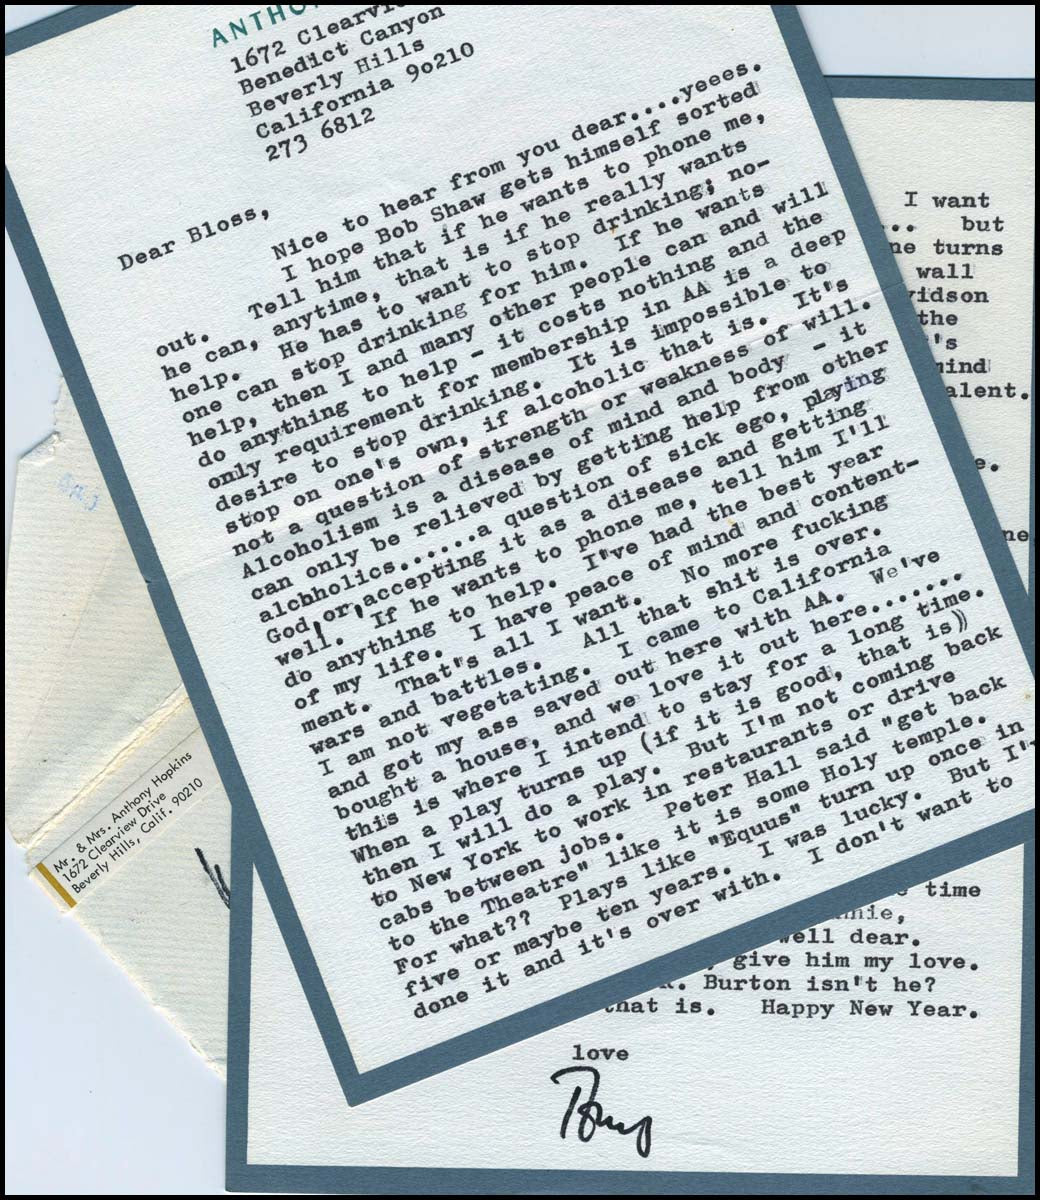 ANTHO
1672 Clearvie
Benedict Canyon
Beverly Hills
California 90210
273 6812
Dear Bloss,
Nice to hear from you dear....yeees.
I hope Bob Shaw gets himself sorted
out. Tell him that if he wants to phone me,
he can, anytime, that is if he really wants
help. He has to want to stop drinking; no-
one can stop drinking for him. If he wants
help, then I and many other people can and will
do anything to help - it costs nothing and the
only requirement for membership in AA is a deep
desire to stop drinking. It is impossible to
stop on one's own, if alcoholic that is. It's
not a question of strength or weakness of will.
Alcoholism is a disease of mind and body - it
can only be relieved by getting help from other
alcbholics.....a question of sick ego, playing
God,or,accepting it as a disease and getting
well. If he wants to phone me, tell him I'll
do anything to help. I've had the best year
of my life. I have peace of mind and content-
ment. That's all I want. No more fucking
wars and battles. All that shit is over.
I am not vegetating. I came to California
and got my ass saved out here with AA. We've
bought a house, and we love it out here.......
this is where I intend to stay for a long time.
When a play turns up (if it is good, that is))
then I will do a play. But I'm not coming back
to New York to work in restaurants or drive
cabs between jobs. Peter Hall said "get back
to the Theatre" like it is some Holy temple.
For what?? Plays like "Equus" turn up once in
five or maybe ten years. I was lucky. But I'
done it and it's over with. I don't want to
I want
.. but
ne turns
wall
vidson
the
's
mind
alent.
e.
ne
time
nnie,
well dear.
, give him my love.
. Burton isn't he?
that is. Happy New Year.
love
Tony
Mr. & Mrs. Anthony Hopkins
1672 Clearview Drive
Beverly Hills, Calif. 90210